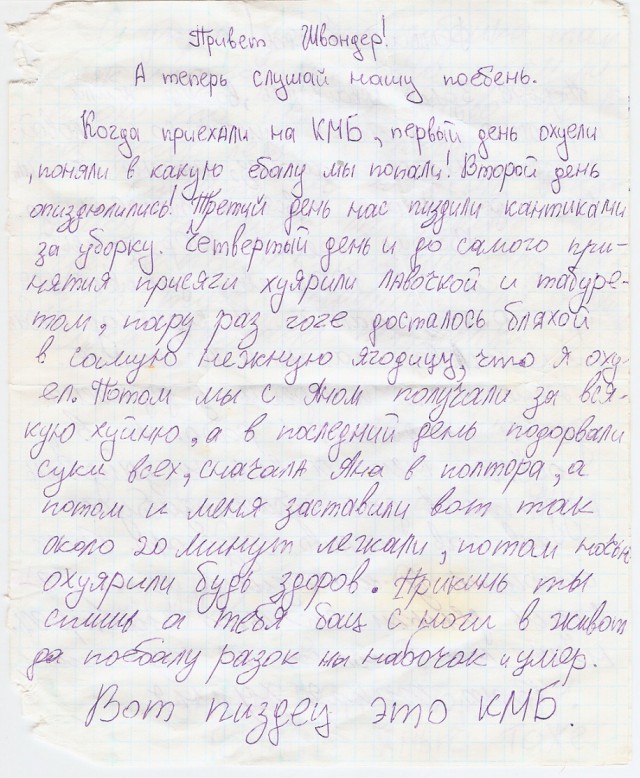 Привет Швондер!
А теперь слушай нашу поебень.
Когда приехали на КМБ, первый день охуели
, поняли в какую ебалу мы попали! Второй день
опиздюлились! Третий день нас пиздили кантиками
за уборку. Четвертый день и до самого при-
нятия присяги хуярили лавочкой и табуре-
том, пару раз гоге досталось бляхой
в самую нежную ягодицу, что я оху-
ел. Потом мы с Яном получали за вся-
кую хуйню, а в последний день подорвали
суки всех, сначала Яна в полтора, а
потом и меня заставили вот так
около 20 минут , потом
охуярили будь здоров. Прикинь ты
спишь а тебя бац с ноги в живот
да поебалу разок и умер.
Вот пиздец это КМБ.